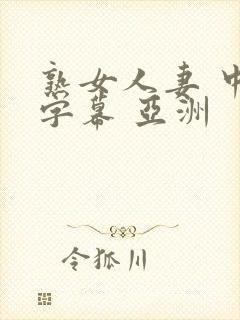 熟女人妻 中
字幕 亞洲
令狐川